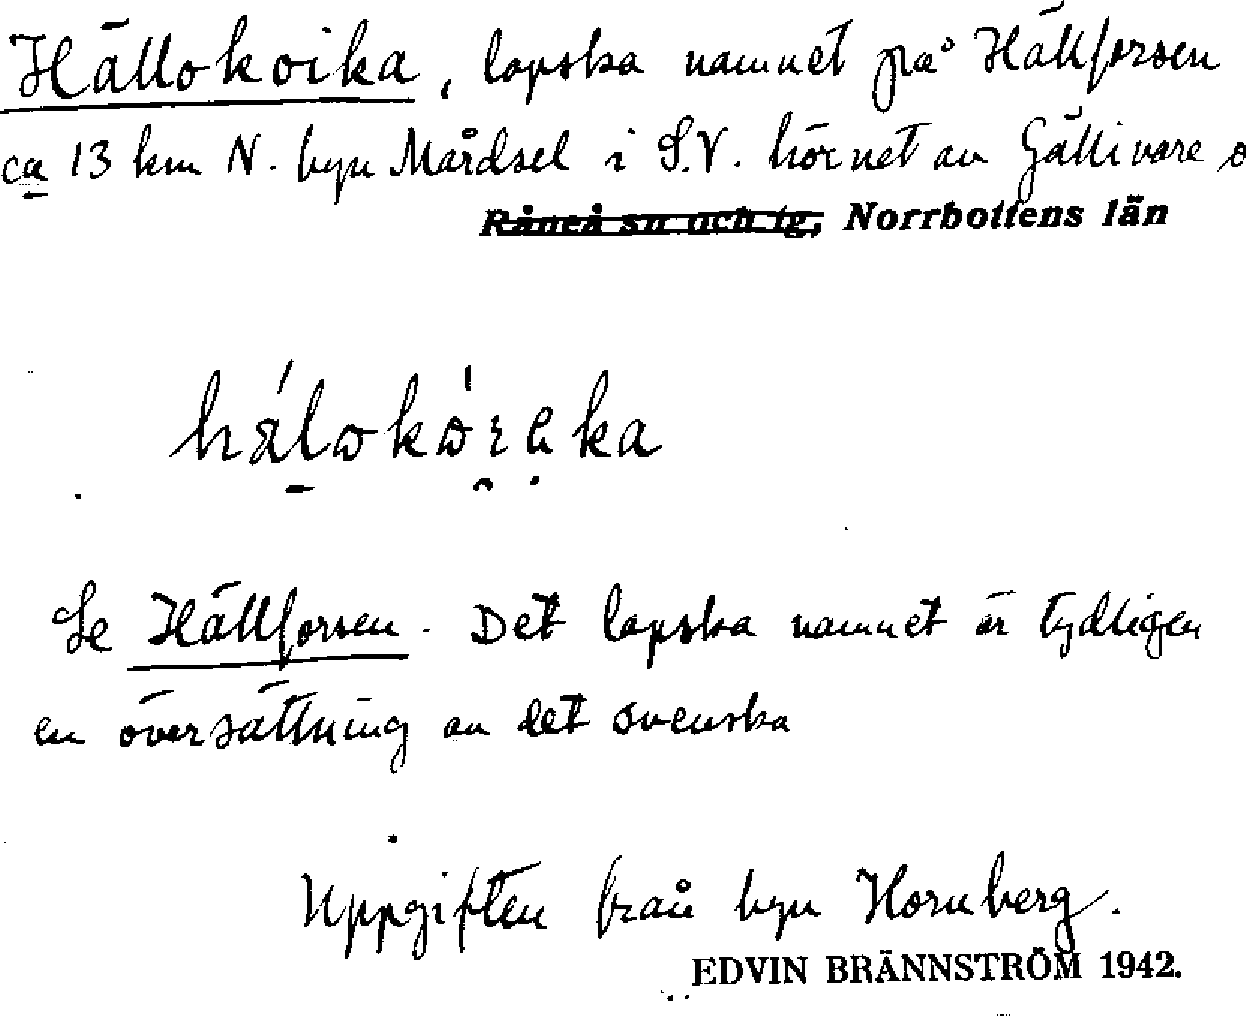 Hällokoika, lapska namnet på Hällforsen
ca 13 km N. byn Mårdsel i S.V. hörnet av Gällivare s
Råneå sn och tg, Norrbottens län
Se Hällforsen. Det lapska namnet är tydligen
en översättning av det svenska
Uppgiften från byn Hornberg.
EDVIN BRÄNNSTRÖM 1942.